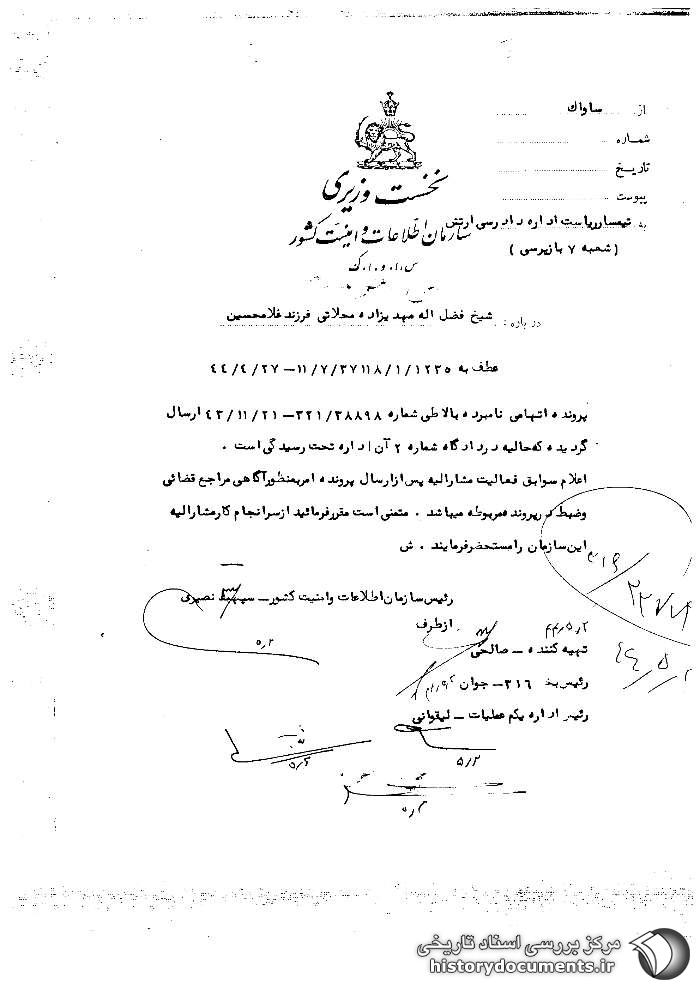 از ساواک
شماره
تاریخ
پیوست
نخست وزیری
سازمان اطلاعات و امنیت کشور
س.ا.و.ا.ک
به تیمسار ریاست اداره دادرسی ارتش
(شعبه ۷ بازپرسی)
درباره: شیخ فضل اله مهدیزاده محلاتی فرزند غلامحسین
عطف به ۱۱/۷/۳۷۱۱۸/۱/۱۲۳۵-۴۴/۴/۲۷
پرونده اتهامی نامبرده بالا طی شماره ۳۲۱/۳۸۸۹۸-۴۳/۱۱/۲۱ ارسال
گردیده که حالیه در دادگاه شماره ۲ آن اداره تحت رسیدگی است .
اعلام سوابق فعالیت مشارالیه پس از ارسال پرونده امر بمنظور آگاهی مراجع قضائی
وضبط در پرونده مربوطه میباشد . متمنی است مقرر فرمائید از سرانجام کار مشارالیه
این سازمان را مستحضر فرمایند . ش
رئیس سازمان اطلاعات وامنیت کشور - سپهبد نصیری
از طرف
۴۴/۵/۲
۵/۲
تهیه کننده - صالحی
رئیس بخش ۳۱۶ - جوان
رئیس اداره یکم عملیات - لیقوانی
۵/۲
۵/۲
۵/۲
مرکز بررسی اسناد تاریخی
historydocuments.ir